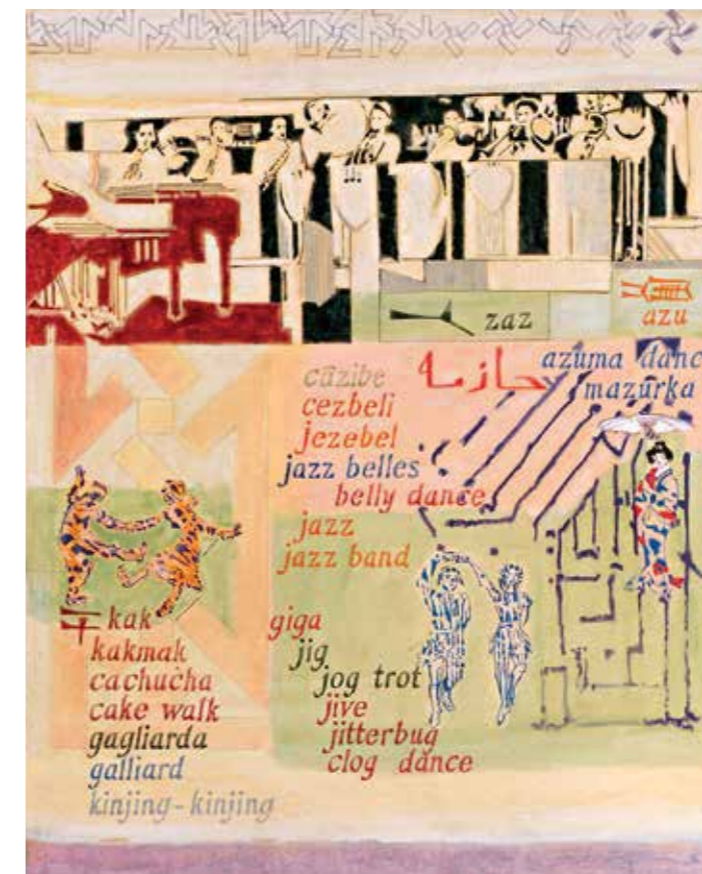 zaz
azu
azuma danc
mazurka
cāzibe
cezbeli
jezebel
jazz belles
belly dance
jazz
jazz band
kak
kakmak
cachucha
cake walk
gagliarda
galliard
kinjing-kinjing
giga
jig
jog trot
jive
jitterbug
clog dance